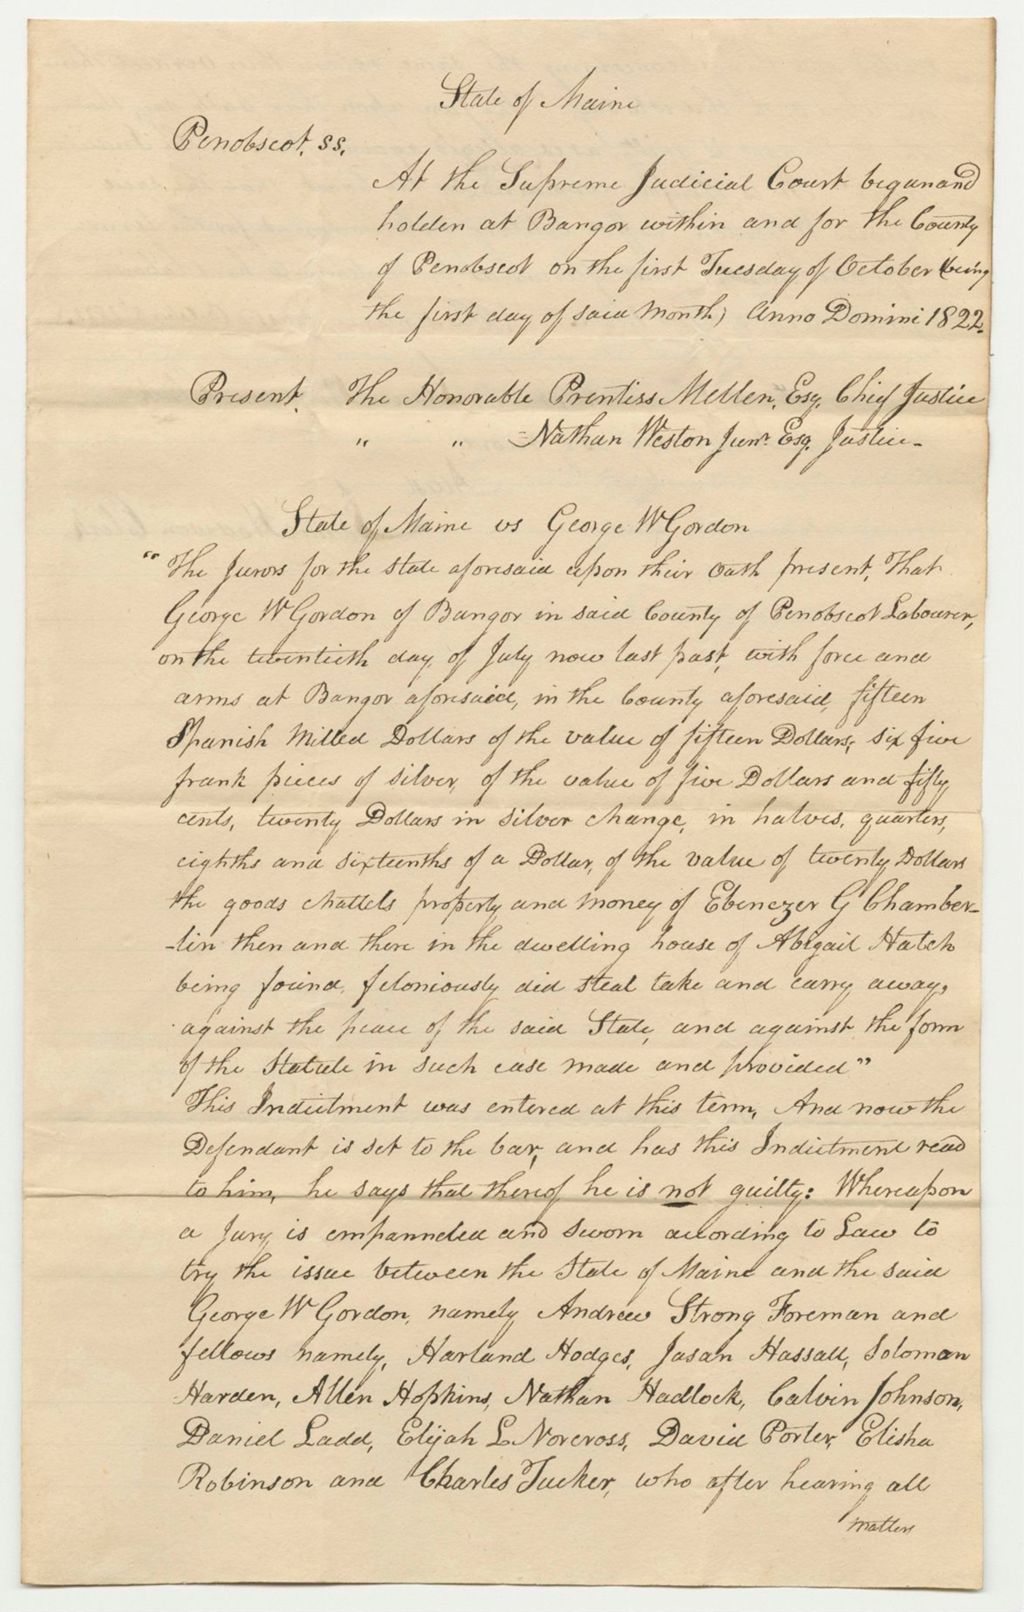 State of Maine
Penobscot. ss.
At the Supreme Judicial Court began and
holden at Bangor within and for the County
of Penobscot on the first Tuesday of October (being
the first day of said Month) Anno Domini 1822.
Present. The Honorable Prentiss Mellen, Esq. Chief Justice
" " Nathan Weston Junr. Esq. Justice
State of Maine vs George W Gordon
"The Jurors for the State aforesaid upon their Oath present, That
George W Gordon of Bangor in said County of Penobscot Labourer,
on the twentieth day of July now last past, with force and
arms at Bangor aforesaid, in the County aforesaid, fifteen
Spanish Milled Dollars of the value of fifteen Dollars; six five
frank pieces of silver, of the value of five Dollars and fifty
cents, twenty Dollars in silver change, in halves, quarters,
eighths and sixteenths of a Dollar, of the value of twenty Dollars
the goods chattels property and money of Ebenezer G Chamber-
-lin then and there in the dwelling house of Abigail Hatch
being found, feloniously did steal take and carry away,
against the peace of the said State, and against the form
of the Statute in such case made and provided"
This Indictment was entered at this term, And now the
Defendant is set to the bar, and has this Indictment read
to him, he says that thereof he is not guilty: Whereupon
a Jury is empannelled and sworn according to Law to
try the issue between the State of Maine and the said
George W Gordon, namely Andrew Strong Foreman and
fellows namely, Harland Hodges, Jasan Hassall, Soloman
Harden, Allen Hopkins, Nathan Hadlock, Calvin Johnson,
Daniel Ladd, Elijah L Norcross, David Porter, Elisha
Robinson and Charles Tucker, who after hearing all
matters